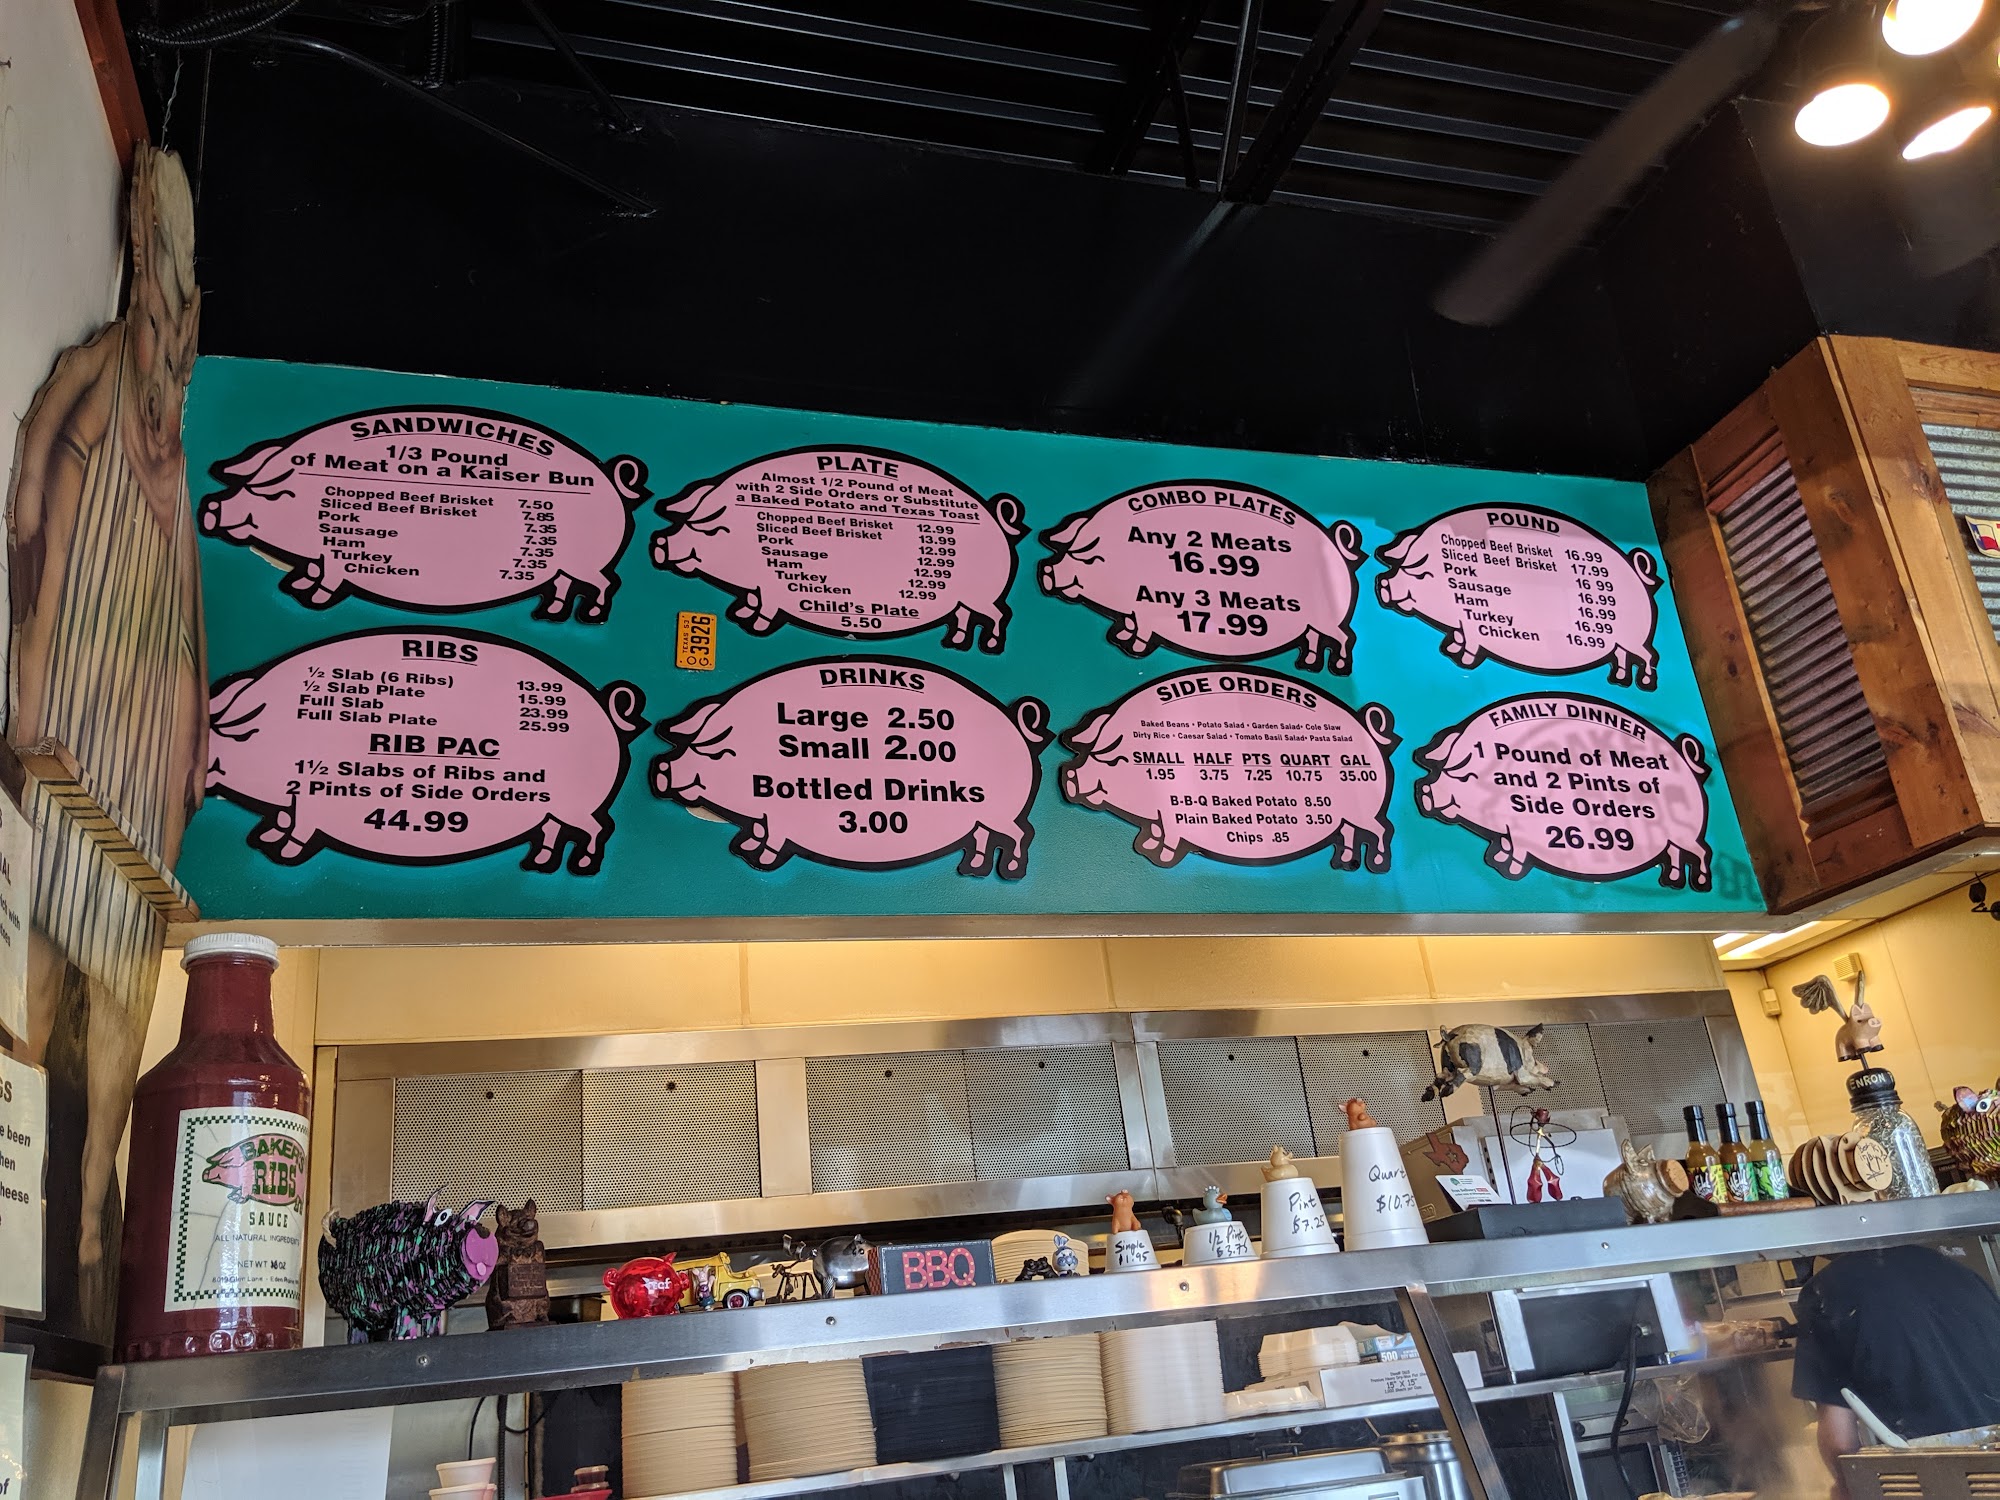 SANDWICHES
1/3 Pound
of Meat on a Kaiser Bun
Chopped Beef Brisket 7.50
Sliced Beef Brisket 7.85
Pork 7.35
Sausage 7.35
Ham 7.35
Turkey 7.35
Chicken 7.35
PLATE
Almost 1/2 Pound of Meat
with 2 Side Orders or Substitute
a Baked Potato and Texas Toast
Chopped Beef Brisket 12.99
Sliced Beef Brisket 13.99
Pork 12.99
Sausage 12.99
Ham 12.99
Turkey 12.99
Chicken 12.99
Child's Plate
5.50
COMBO PLATES
Any 2 Meats
16.99
Any 3 Meats
17.99
POUND
Chopped Beef Brisket 16.99
Sliced Beef Brisket 17.99
Pork 16 99
Sausage 16.99
Ham 16.99
Turkey 16.99
Chicken 16.99
RIBS
½ Slab (6 Ribs) 13.99
½ Slab Plate 15.99
Full Slab 23.99
Full Slab Plate 25.99
RIB PAC
1½ Slabs of Ribs and
2 Pints of Side Orders
44.99
TEXAS 53
OG 3926
DRINKS
Large 2.50
Small 2.00
Bottled Drinks
3.00
SIDE ORDERS
Baked Beans • Potato Salad • Garden Salad • Cole Slaw
Dirty Rice • Caesar Salad • Tomato Basil Salad • Pasta Salad
SMALL HALF PTS QUART GAL
1.95 3.75 7.25 10.75 35.00
B-B-Q Baked Potato 8.50
Plain Baked Potato 3.50
Chips .85
FAMILY DINNER
1 Pound of Meat
and 2 Pints of
Side Orders
26.99
BAKER'S
RIBS
SAUCE
ALL NATURAL INGREDIENTS
NET WT 18 OZ
BBQ
Single
1.95
1/2 Pint
$3.75
Pint
$7.25
Quart
$10.75
ENRON
500
15" X 15"